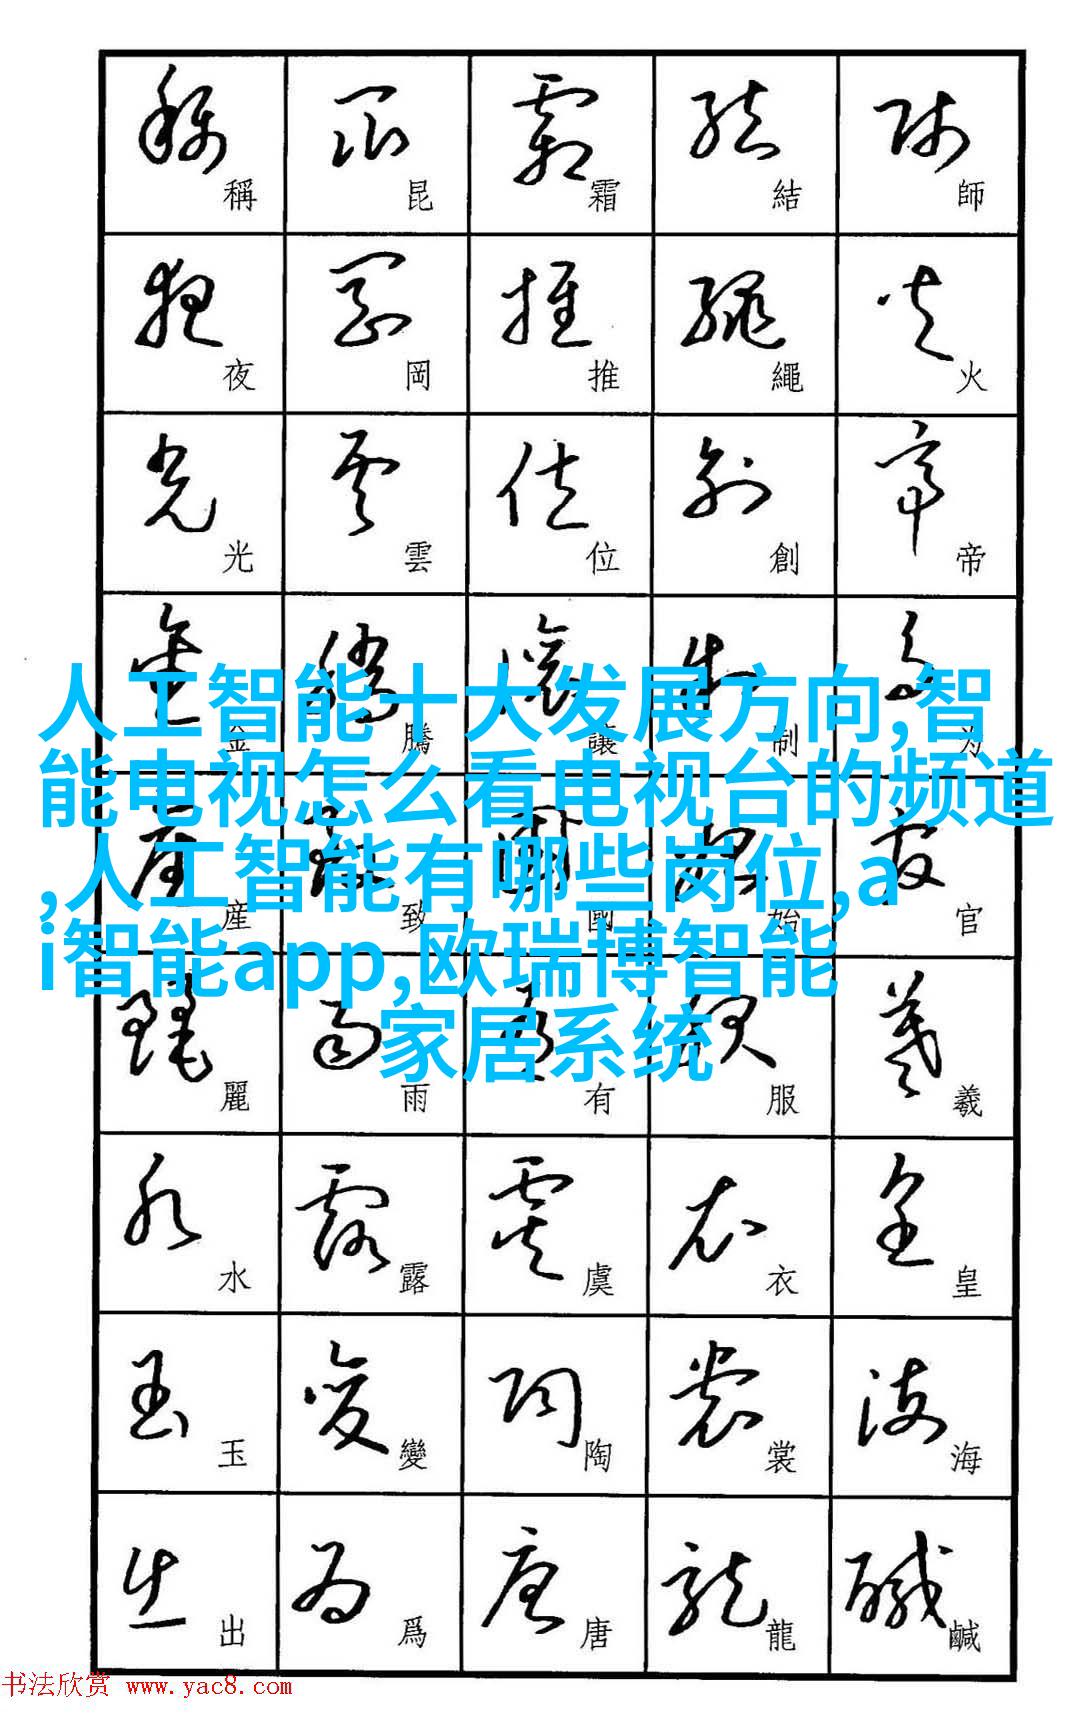 稱 昆 霜 結 師
夜 岡 推 繩 火
光 雲 位 創 帝
金 騰 讓 制 为
人工智能十大发展方向,智
能电视怎么看电视台的频道
,人工智能有哪些岗位,a
i智能app,欧瑞博智能
家居系统
産 致 國 始 官
麗 雨 有 服 羲
水 露 虞 衣 皇
玉 變 陶 裳 海
出 爲 唐 龍 鹹
书法欣赏 www.yac8.com